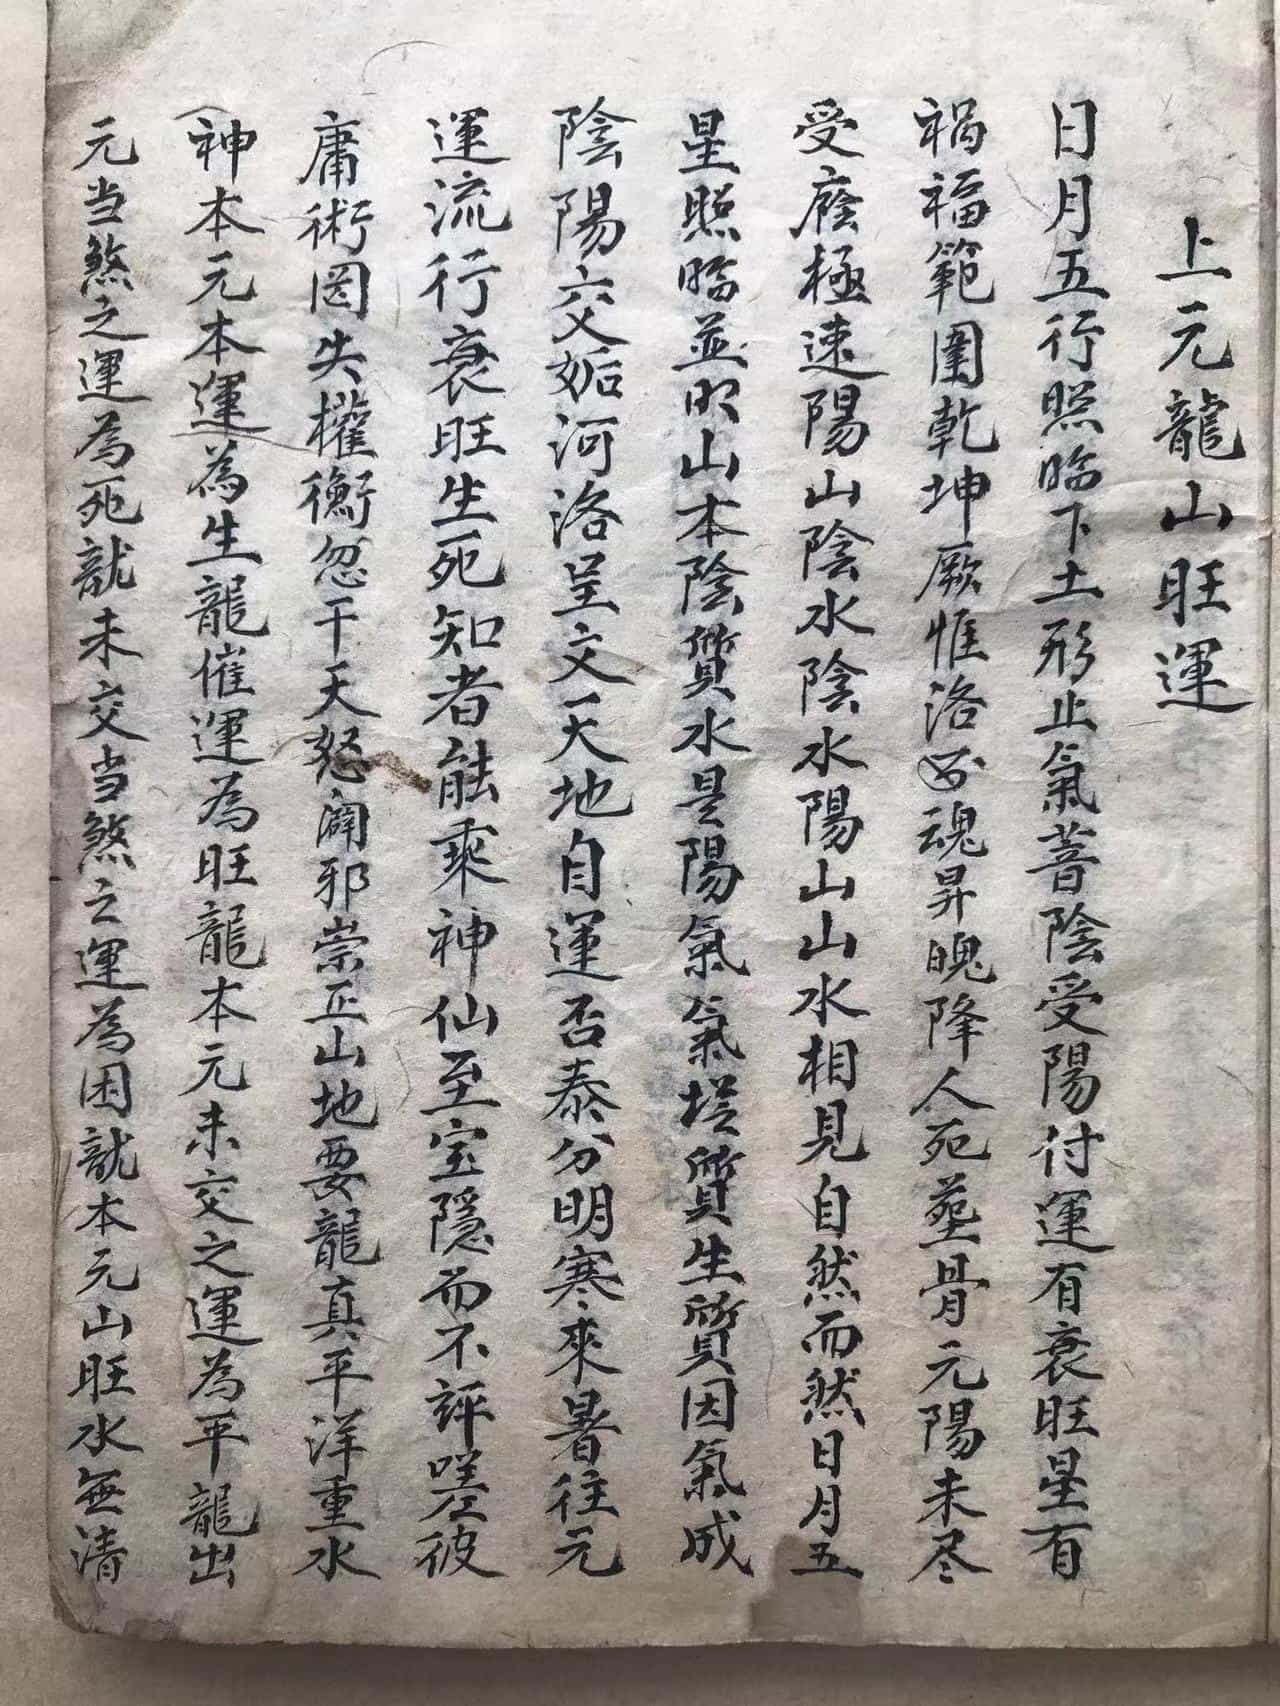 上元龍山旺運
日月五行照臨下土形止氣蓄陰受陽付運有衰旺星有
禍福範圍乾坤厥惟洛魂昇魄降人死塟骨元陽未尽
受廕極速陽山陰水陰水陽山山水相見自然而然日月五
星照臨並明山本陰質水是陽氣氣塔質生質因氣成
陰陽交姤河洛呈文天地自運否泰分明寒來暑往元
運流行衰旺生死知者能乘神仙至宝隱而不評嗟彼
庸術罔失權衡忽干天怒闢邪崇正山地要龍真平洋重水
神本元本運為生龍催運為旺龍本元未交之運為平龍出
元当煞之運為死龍未交当煞之運為困龍本元山旺水無清